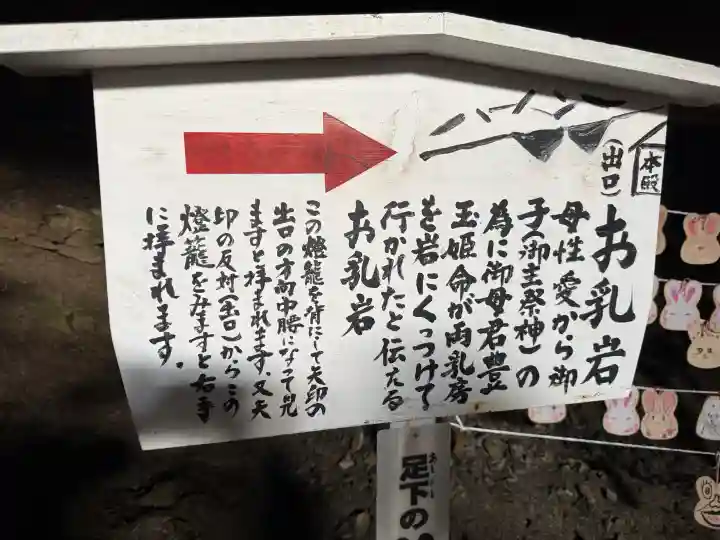 本殿
（出口）
お乳岩
母性愛から御
子（御主祭神）の
為に御母君豊
玉姫命が両乳房
を岩にくっつけて
行かれたと伝える
お乳岩
この燈籠を背にして矢印の
出口の方向中腰になって見
ますと拝まれます。又矢
印の反対（玉口）からこの
燈籠をみますと右手
に拝まれます。
足下の